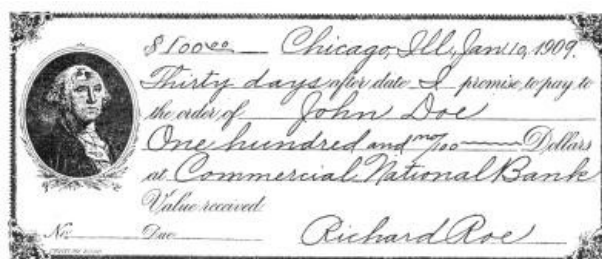 $100.00 Chicago, Ill, Jan 10, 1909.
Thirty days after date I promise to pay to
the order of John Doe
One hundred and no/100 Dollars
at Commercial National Bank
Value received
No. Due Richard Roe